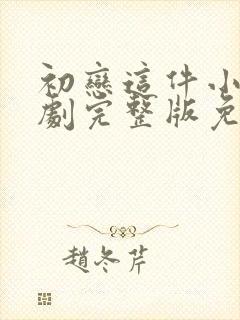 初戀這件小
劇完整版免
趙冬芹